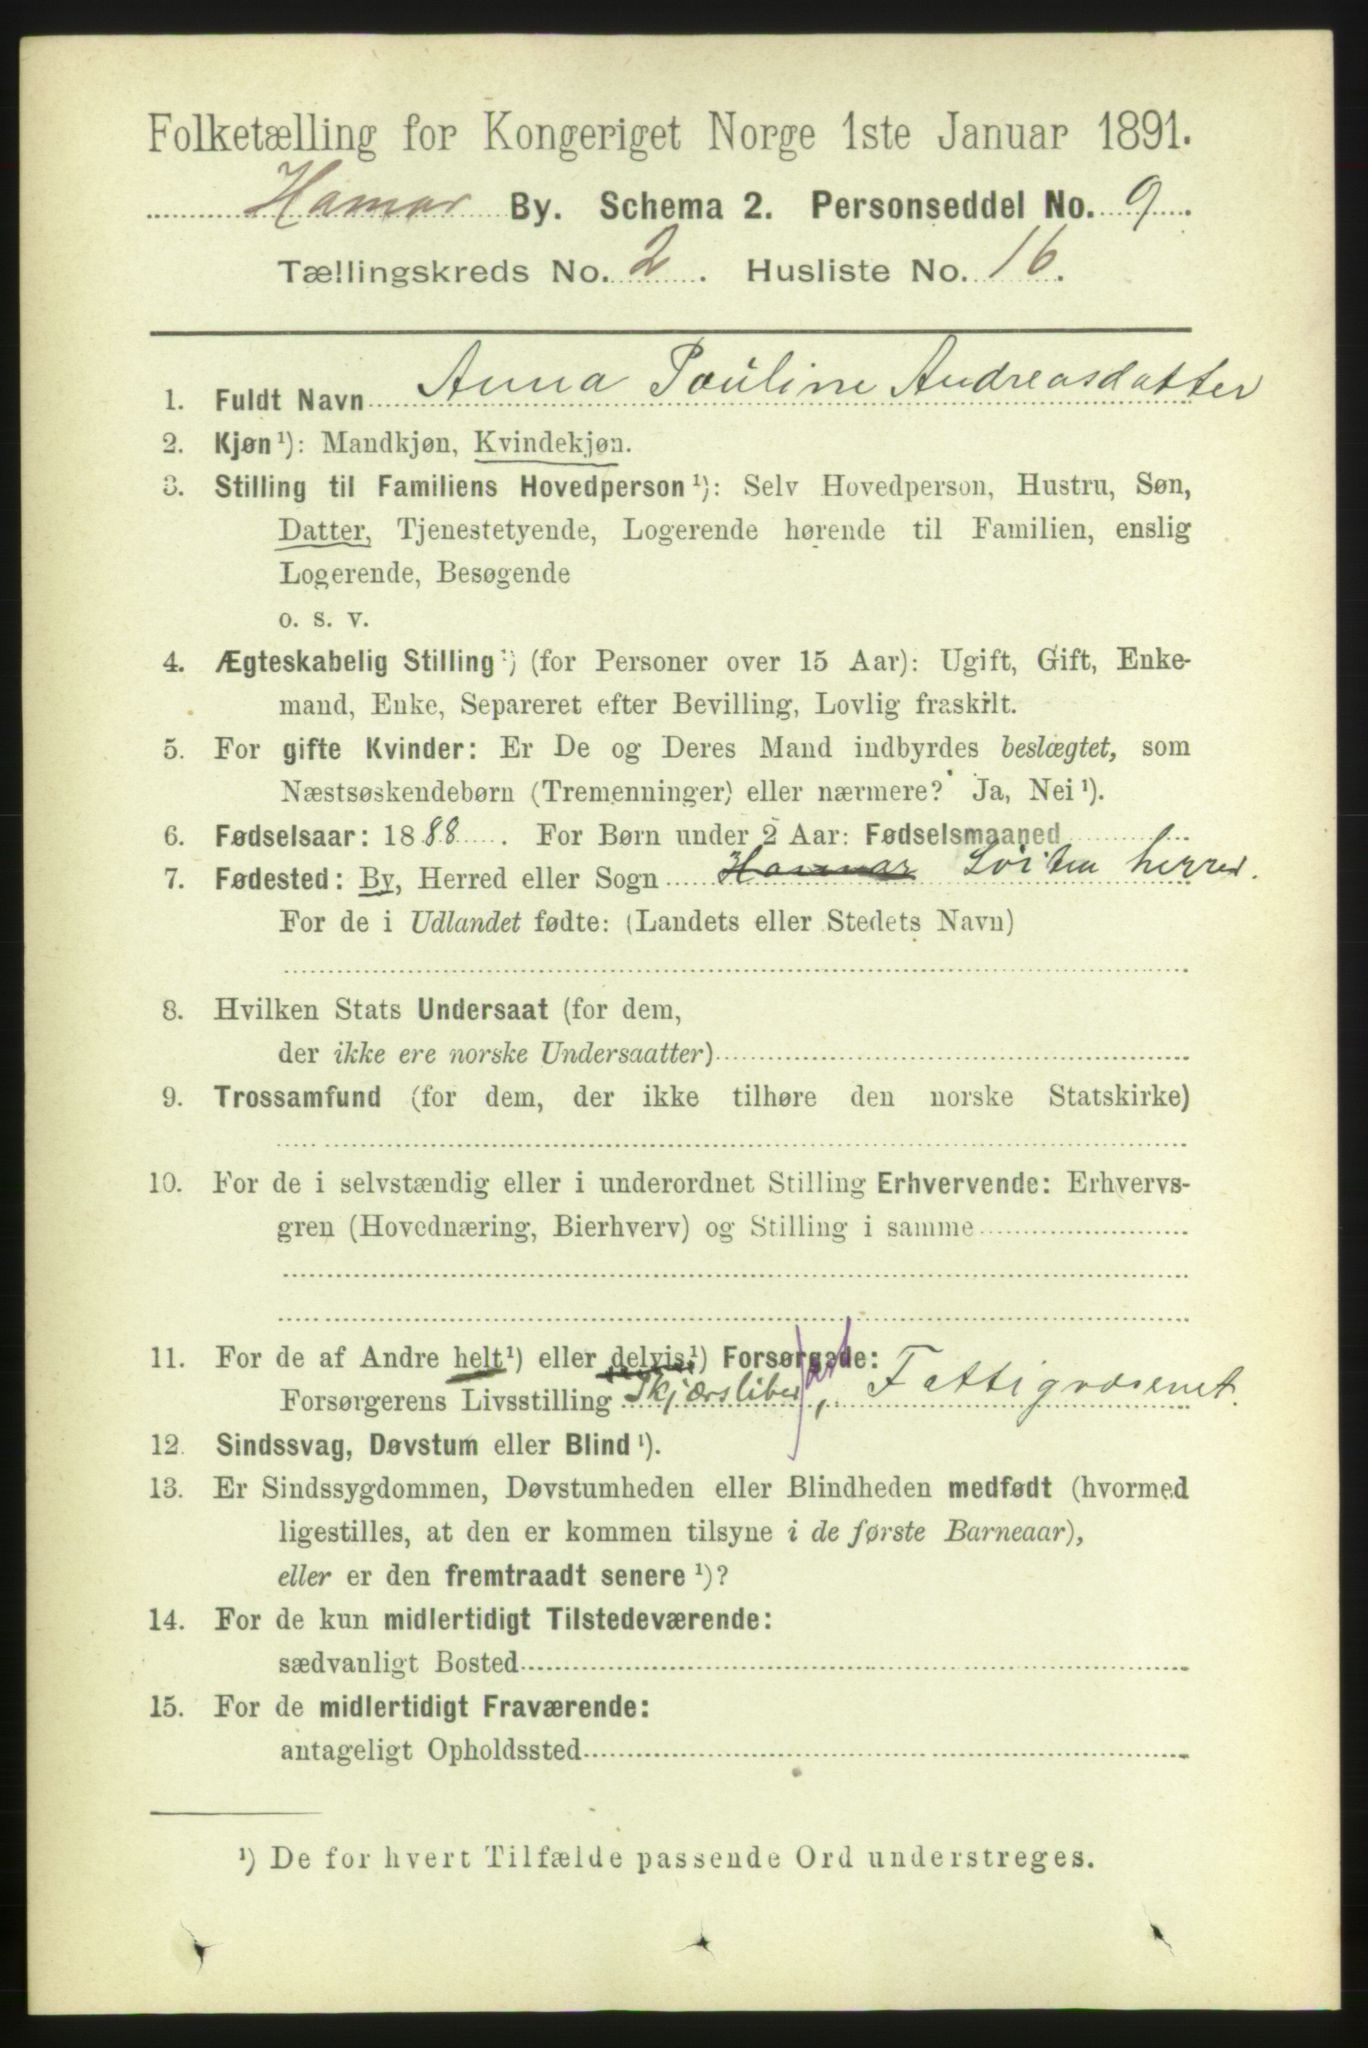 Folketælling for Kongeriget Norge 1ste Januar 1891.
Hamar By. Schema 2. Personseddel No. 9.
Tællingskreds No. 2. Husliste No. 16.
1. Fuldt Navn Anna Pauline Andreasdatter
2. Kjøn¹): Mandkjøn, Kvindekjøn.
3. Stilling til Familiens Hovedperson¹): Selv Hovedperson, Hustru, Søn,
Datter, Tjenestetyende, Logerende hørende til Familien, enslig
Logerende, Besøgende
o. s. v.
4. Ægteskabelig Stilling¹) (for Personer over 15 Aar): Ugift, Gift, Enke-
mand, Enke, Separeret efter Bevilling, Lovlig fraskilt.
5. For gifte Kvinder: Er De og Deres Mand indbyrdes beslægtet, som
Næstsøskendebørn (Tremenninger) eller nærmere? Ja, Nei¹).
6. Fødselsaar: 1888. For Børn under 2 Aar: Fødselsmaaned
7. Fødested: By, Herred eller Sogn Hamar Löiten herred.
For de i Udlandet fødte: (Landets eller Stedets Navn)
8. Hvilken Stats Undersaat (for dem,
der ikke ere norske Undersaatter)
9. Trossamfund (for dem, der ikke tilhøre den norske Statskirke)
10. For de i selvstændig eller i underordnet Stilling Erhvervende: Erhvervs-
gren (Hovednæring, Bierhverv) og Stilling i samme
11. For de af Andre helt¹) eller delvis¹) Forsørgede:
Forsørgerens Livsstilling Skjærsliber, Fattigvæsenet.
12. Sindssvag, Døvstum eller Blind¹).
13. Er Sindssygdommen, Døvstumheden eller Blindheden medfødt (hvormed
ligestilles, at den er kommen tilsyne i de første Barneaar),
eller er den fremtraadt senere¹)?
14. For de kun midlertidigt Tilstedeværende:
sædvanligt Bosted
15. For de midlertidigt Fraværende:
antageligt Opholdssted
¹) De for hvert Tilfælde passende Ord understreges.